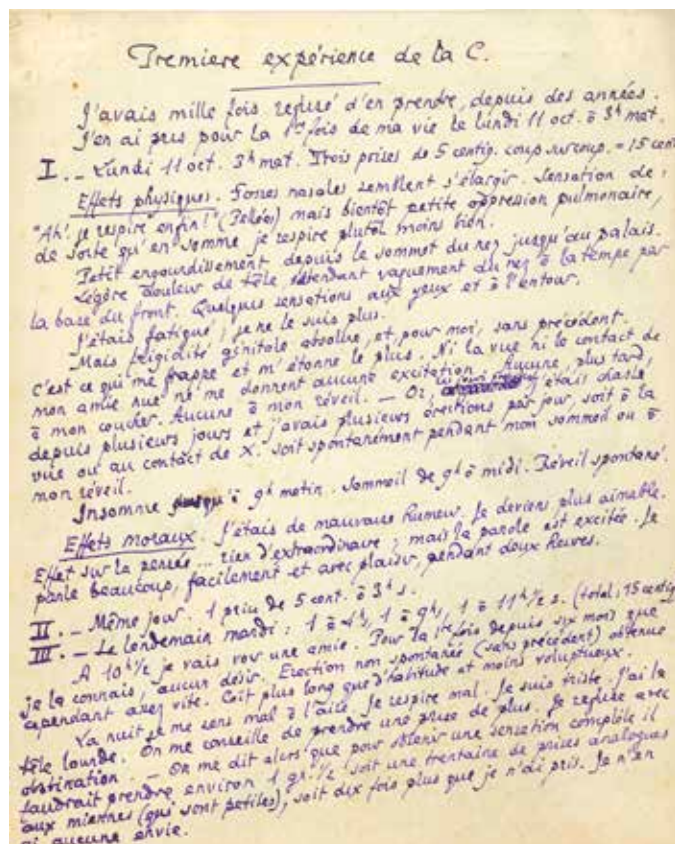 Premiere expérience de la C.
J'avais mille fois refusé d'en prendre, depuis des années.
J'en ai pris pour la 1re fois de ma vie le lundi 11 oct. à 3h mat.
I. – Lundi 11 oct. 3h mat. Trois prises de 5 centig. coup sur coup. = 15 cent
Effets physiques. Fosses nasales semblent s'élargir. Sensation de :
"Ah! je respire enfin!" (Pelléas) mais bientôt petite oppression pulmonaire,
de sorte qu'en somme je respire plutôt moins bien.
Petit engourdissement depuis le sommet du nez jusqu'au palais.
Légère douleur de tête, s'étendant vaguement du nez à la tempe par
la base du front. Quelques sensations aux yeux et à l'entour.
J'étais fatigué ; je ne le suis plus.
Mais frigidité génitale absolue, et pour moi, sans précédent.
C'est ce qui me frappe et m'étonne le plus. Ni la vue ni le contact de
mon amie nue ne me donnent aucune excitation. Aucune, plus tard,
à mon coucher. Aucune à mon réveil. – Or, étais chaste
depuis plusieurs jours et j'avais plusieurs érections par jour, soit à la
vue ou au contact de X. soit spontanément pendant mon sommeil ou à
mon réveil.
Insomnie jusqu'à 9h matin. Sommeil de 9h à midi. Réveil spontané.
Effets moraux. J'étais de mauvaise humeur. Je deviens plus aimable.
Effet sur la pensée ... rien d'extraordinaire ; mais la parole est excitée. Je
parle beaucoup, facilement et avec plaisir, pendant deux heures.
II. – Même jour. 1 prise de 5 cent. à 3h s.
III. – Le lendemain mardi : 1 à 4h, 1 à 9h, 1 à 11h 1/2 s. (total : 15 centig
A 10h 1/2 je vais voir une amie. Pour la 1re fois depuis six mois que
je la connais, aucun désir. Erection non spontanée (sans précédent) obtenue
cependant assez vite. Coït plus long que d'habitude et moins voluptueux.
La nuit je me sens mal à l'aise. Je respire mal. Je suis triste. J'ai la
tête lourde. On me conseille de prendre une prise de plus. Je refuse avec
obstination. – On me dit alors que pour obtenir une sensation complète il
faudrait prendre environ 1 gr. 1/2 soit une trentaine de prises analogues
aux miennes (qui sont petites), soit dix fois plus que je n'ai pris. Je n'en
ai aucune envie.